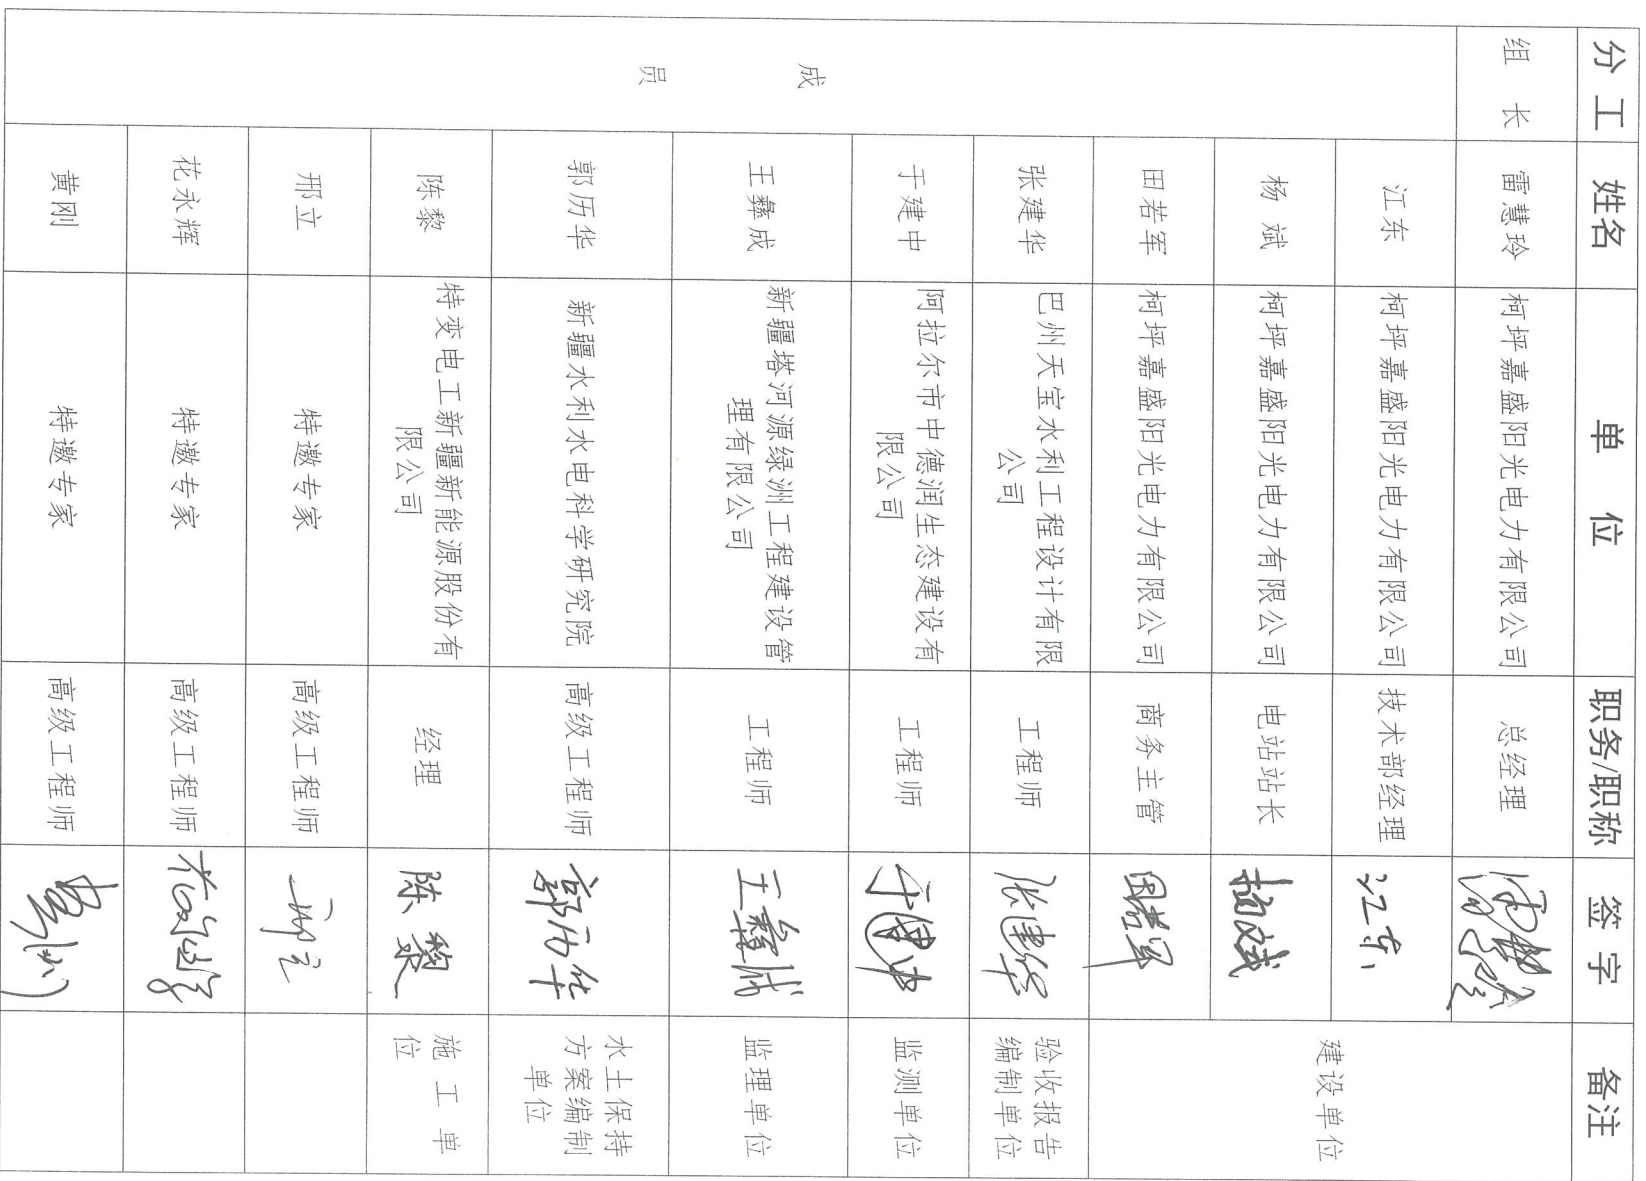 分 工 姓名 单 位 职务/职称 签 字 备注
组 长 雷慧玲 柯坪嘉盛阳光电力有限公司 总经理 建设单位
成 员
江东 柯坪嘉盛阳光电力有限公司 技术部经理 江东
杨 斌 柯坪嘉盛阳光电力有限公司 电站站长 杨斌
田若军 柯坪嘉盛阳光电力有限公司 商务主管 田若军
张建华 巴州天宝水利工程设计有限
公司 工程师 张建华 验收报告
编制单位
于建中 阿拉尔市中德润生态建设有
限公司 工程师 于建中 监测单位
王彝成 新疆塔河源绿洲工程建设管
理有限公司 工程师 王彝成 监理单位
郭历华 新疆水利水电科学研究院 高级工程师 郭历华 水土保持
方案编制
单位
陈黎 特变电工新疆新能源股份有
限公司 经理 陈黎 施 工 单
位
邢立 特邀专家 高级工程师 邢立
花永辉 特邀专家 高级工程师
黄刚 特邀专家 高级工程师